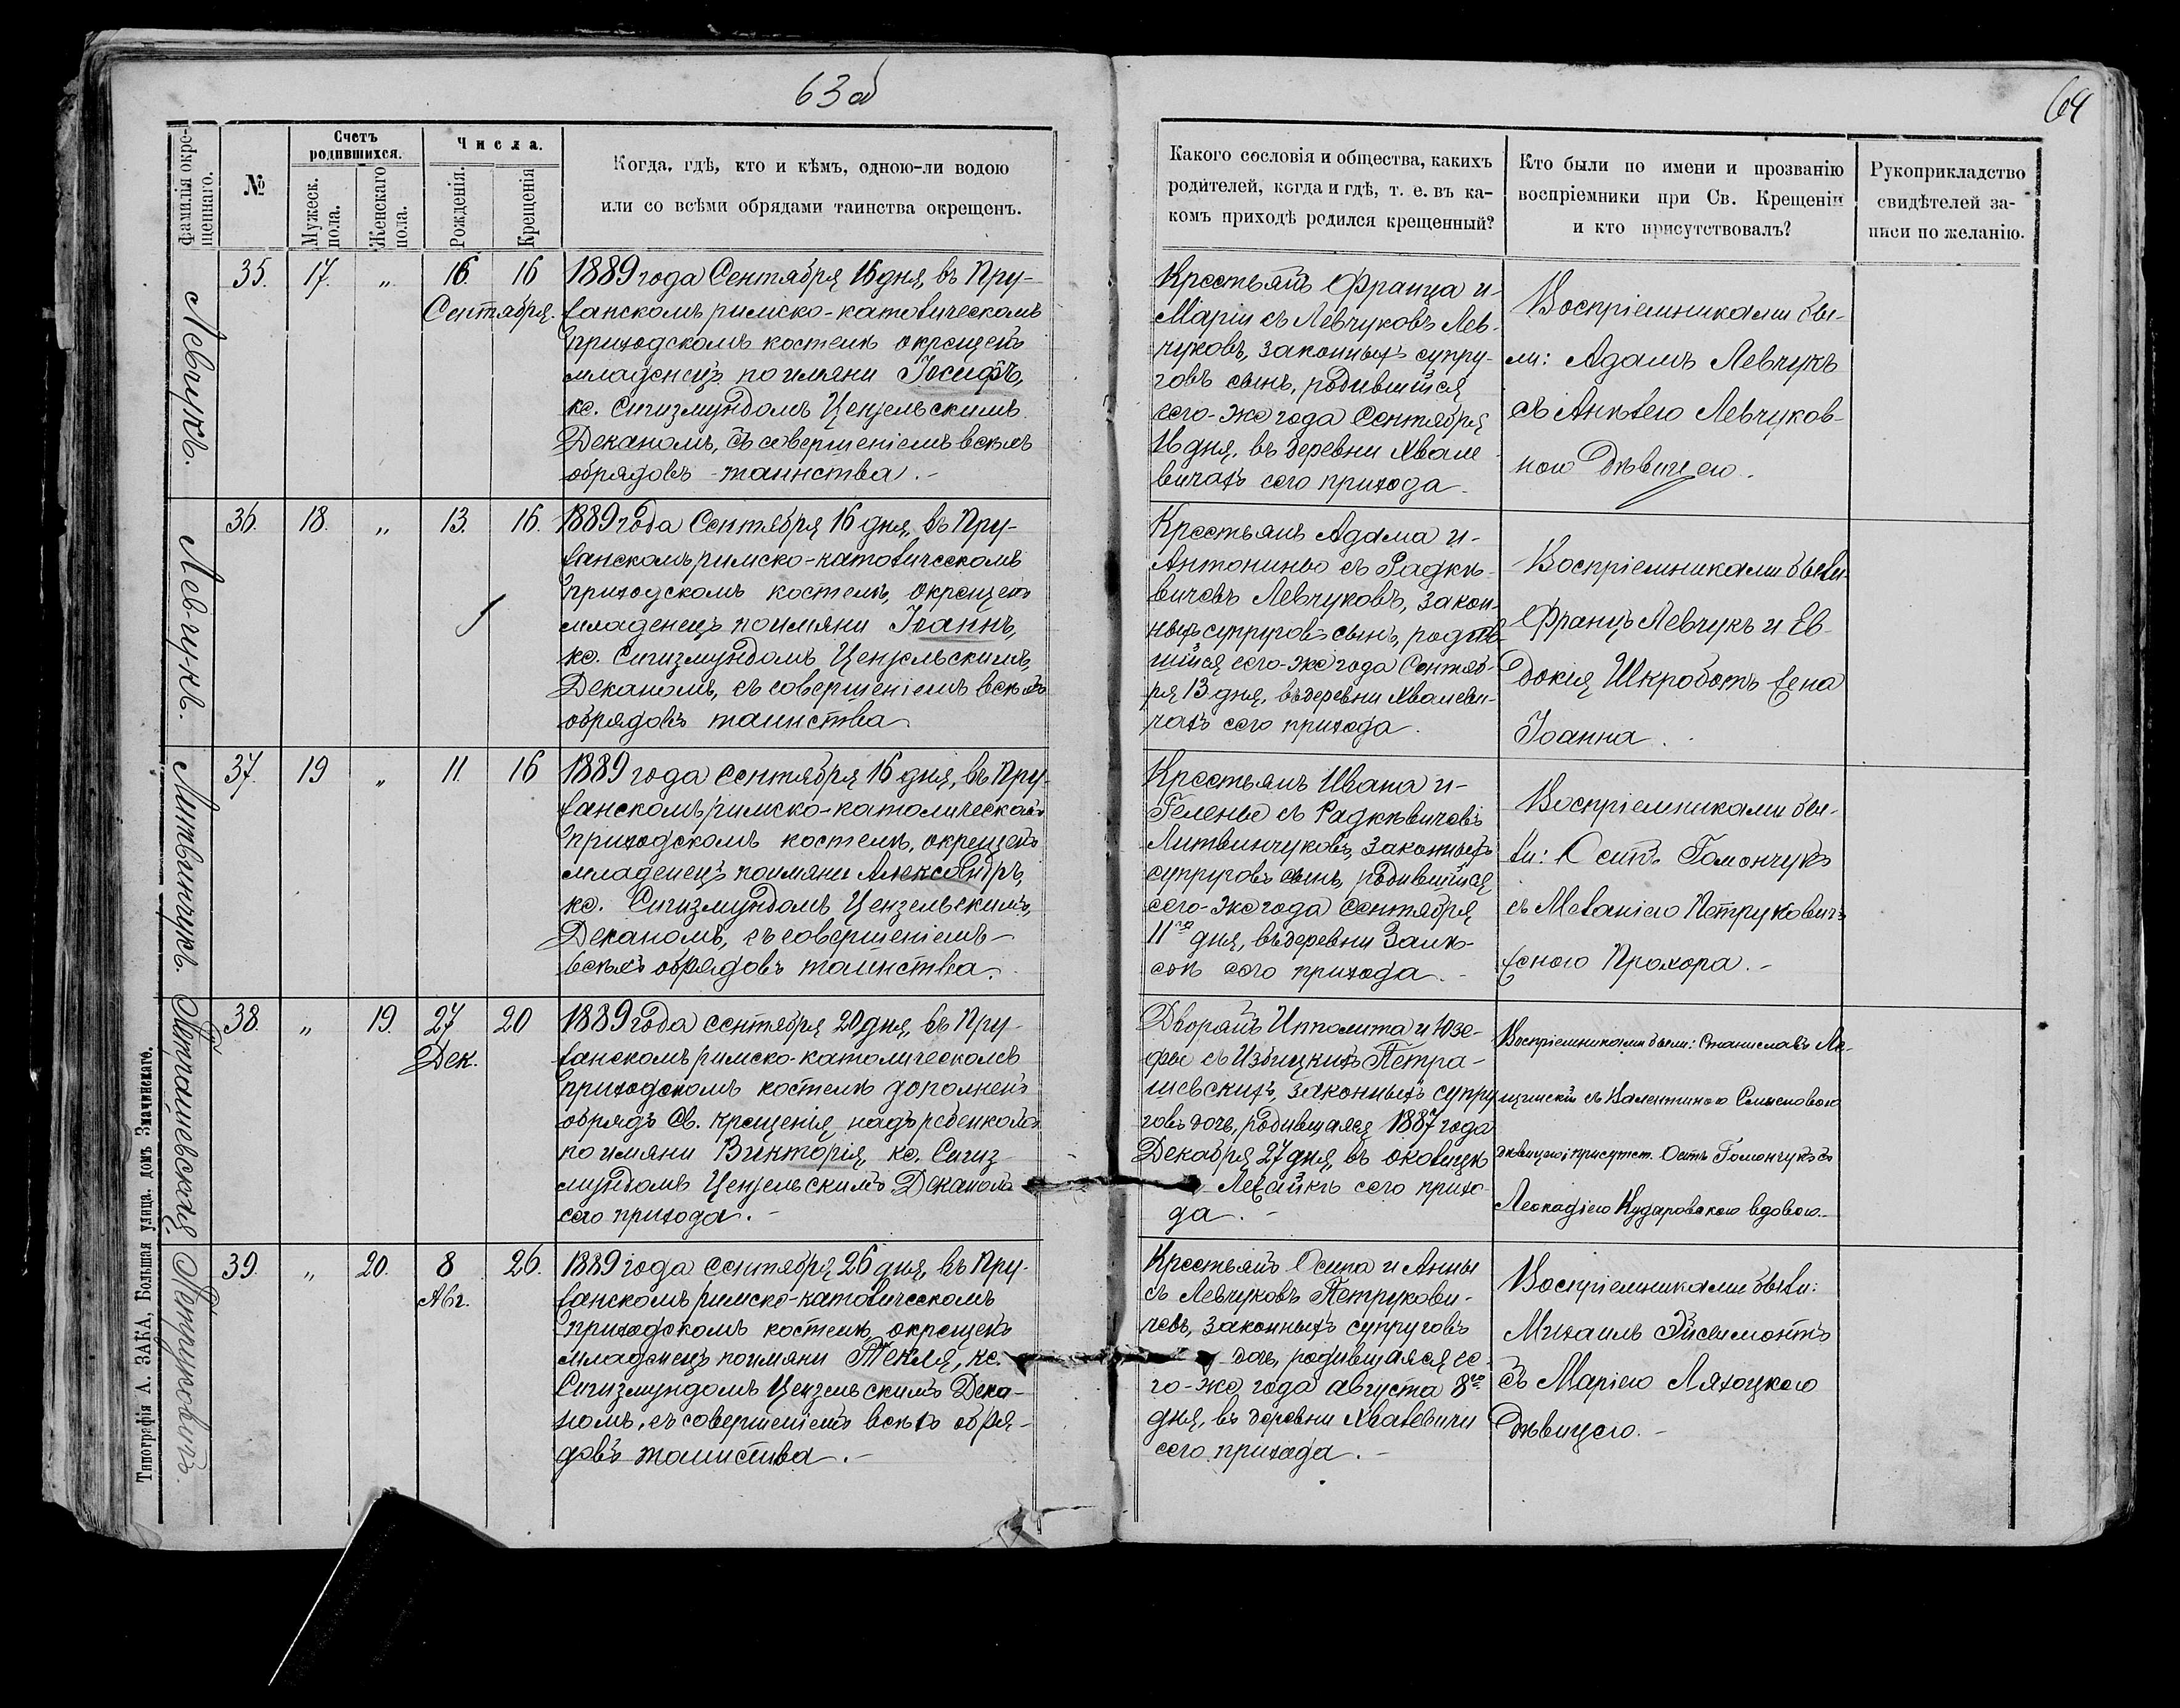 63 об
64
фамилія окре-
щеннаго.
№
Счетъ
родившихся.
Мужеск.
пола.
Женскаго
пола.
Числа.
Рожденія.
Крещенія
Когда, гдѣ, кто и кѣмъ, одною-ли водою
или со всѣми обрядами таинства окрещенъ.
Какого сословія и общества, какихъ
родителей, когда и гдѣ, т. е. въ ка-
комъ приходѣ родился крещенный?
Кто были по имени и прозванію
воспріемники при Св. Крещеніи
и кто присутствовалъ?
Рукоприкладство
свидѣтелей за-
писи по желанію.
Левчукъ.
35. 17. „ 16. 16
Сентября.
1889 года Сентября 16 дня, въ Пру-
жанскомъ римско-католическомъ
приходскомъ костелѣ окрещенъ
младенецъ по имяни Іосифъ,
кс. Сигизмундомъ Цензельскимъ
Деканомъ, съ совершеніемъ всѣхъ
обрядовъ таинства.-
Крестьянъ Франца и
Маріи съ Левчуковъ Лев-
чуковъ, законныхъ супру-
говъ сынъ, родившійся
сего-же года Сентября
16 дня, въ деревни Хвале-
вичахъ сего прихода.
Воспріемниками бы-
ли: Адамъ Левчукъ
съ Анѣлею Левчуков-
ною Дѣвицею.
Левчукъ.
36. 18. „ 13. 16.
1889 года Сентября 16 дня, въ Пру-
жанскомъ римско-католическомъ
приходскомъ костелѣ, окрещенъ
младенецъ по имяни Іоаннъ,
кс. Сигизмундомъ Цензельскимъ,
Деканомъ, съ совершеніемъ всѣхъ
обрядовъ таинства.
Крестьянъ Адама и-
Антонины съ Радкѣ-
вичовъ Левчуковъ, закон-
ныхъ супруговъ сынъ, родив-
шійся сего-же года Сентяб-
ря 13 дня, въ деревни Хвалеви-
чахъ сего прихода.
Воспріемниками были
Францъ Левчукъ и Ев-
докія Шкроботъ жена
Іоанна.
Литвинчукъ.
37. 19 „ 11. 16
1889 года Сентября 16 дня, въ Пру-
жанскомъ римско-католическомъ
приходскомъ костелѣ, окрещенъ
младенецъ по имяни Александръ,
кс. Сигизмундомъ Цензельскимъ,
Деканомъ, съ совершеніемъ-
всѣхъ обрядовъ таинства.-
Крестьянъ Ивана и-
Гелены съ Радкѣвичовъ
Литвинчуковъ, законныхъ
супруговъ сынъ, родившійся
сего-же года Сентября
11го дня, въ деревни Залѣ-
сѣ сего прихода.-
Воспріемниками бы-
ли: Осипъ Гомончукъ
съ Меланіею Петруковичъ
женою Прохора.-
Петрашевская
38. „ 19. 27 20
Дек.
1889 года Сентября 20 дня, въ Пру-
жанскомъ римско-католическомъ
приходскомъ костелѣ дополненъ
обрядъ Св. Крещенія надъ ребенкомъ
по имяни Викторія, кс. Сигиз-
мундомъ Цензельскимъ Деканомъ
сего прихода.-
Дворянъ Ипполита и Юзе-
фы съ Избицкихъ Петра-
шевскихъ, законныхъ супру-
говъ дочь, родившаяся 1887 года
Декабря 27 дня, въ околицѣ
сего прихо-
да.-
Воспріемниками были: Станиславъ
съ Валентиною
дѣвицею присутст. Осипъ Гомончукъ съ
Леокадіею Кударовскою вдовою.-
Петруковичъ.
39. „ 20. 8 26.
Авг.
1889 года Сентября 26 дня, въ Пру-
жанскомъ римско-католическомъ
приходскомъ костелѣ, окрещенъ
младенецъ по имяни Текля, кс.
Сигизмундомъ Цензельскимъ Дека-
номъ, съ совершеніемъ всѣхъ обря-
довъ таинства.-
Крестьянъ Осипа и Анны
съ Левчуковъ Петрукови-
чевъ, законныхъ супруговъ
дочь, родившаяся се-
го-же года августа 8го
дня, въ деревни Хвалевичи
сего прихода.-
Воспріемниками были:
Михаилъ Эйсимонтъ
съ Маріею Ляхоцкою
Дѣвицею.-
Типографія А. ЗАКА, Большая улица, домъ Значинскаго.